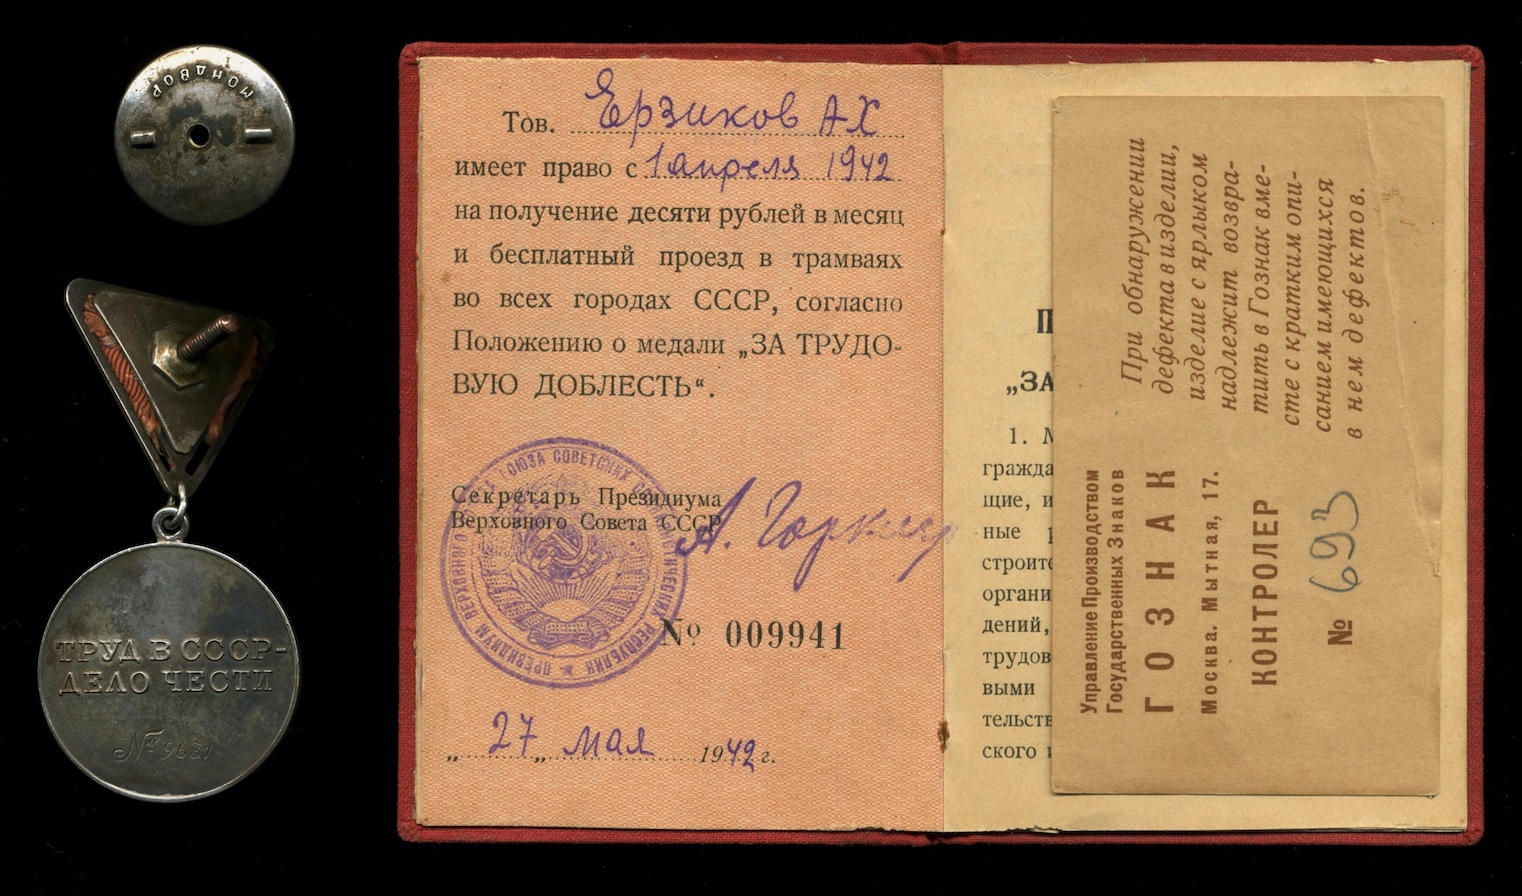 МОНДВОР
ТРУД В СССР-
ДЕЛО ЧЕСТИ
Тов. Ерзиков АХ
имеет право с 1 апреля 1942
на получение десяти рублей в месяц
и бесплатный проезд в трамваях
во всех городах СССР, согласно
Положению о медали „ЗА ТРУДО-
ВУЮ ДОБЛЕСТЬ“.
Секретарь Президиума
Верховного Совета СССР
А. Горкин
№ 009941
„ 27 „ мая 1942 г.
„ЗА
1. М
гражда
щие, и
ные р
строите
органи
дений,
трудов
выми
тельств
ского и
При обнаружении
дефекта в изделии,
изделие с ярлыком
надлежит возвра-
тить в Гознак вме-
сте с кратким опи-
санием имеющихся
в нем дефектов.
Управление Производством
Государственных Знаков
ГОЗНАК
Москва. Мытная, 17.
КОНТРОЛЕР
№ 693